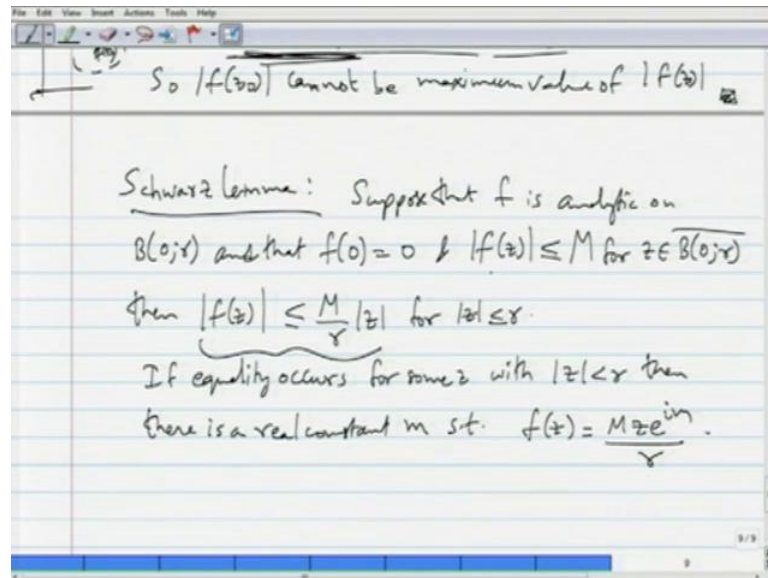 File Edit View Insert Actions Tools Help
So |f(z₀)| cannot be maximum value of |f(z)|
Schwarz lemma: Suppose that f is analytic on
B(0;r) and that f(0)=0 & |f(z)| ≤ M for z ∈ \overline{B(0;r)}
then |f(z)| ≤ \frac{M}{r} |z| for |z| ≤ r.
If equality occurs for some z with |z|<r then
there is a real constant m s.t. f(z) = \frac{M z e^{im}}{r}.
9/9
9